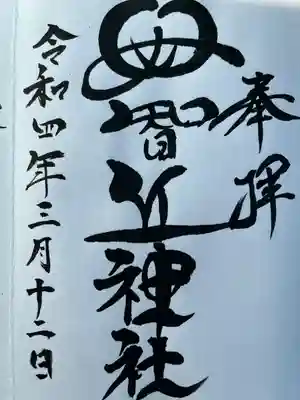 奉拝
智
近神社
令和四年三月十二日